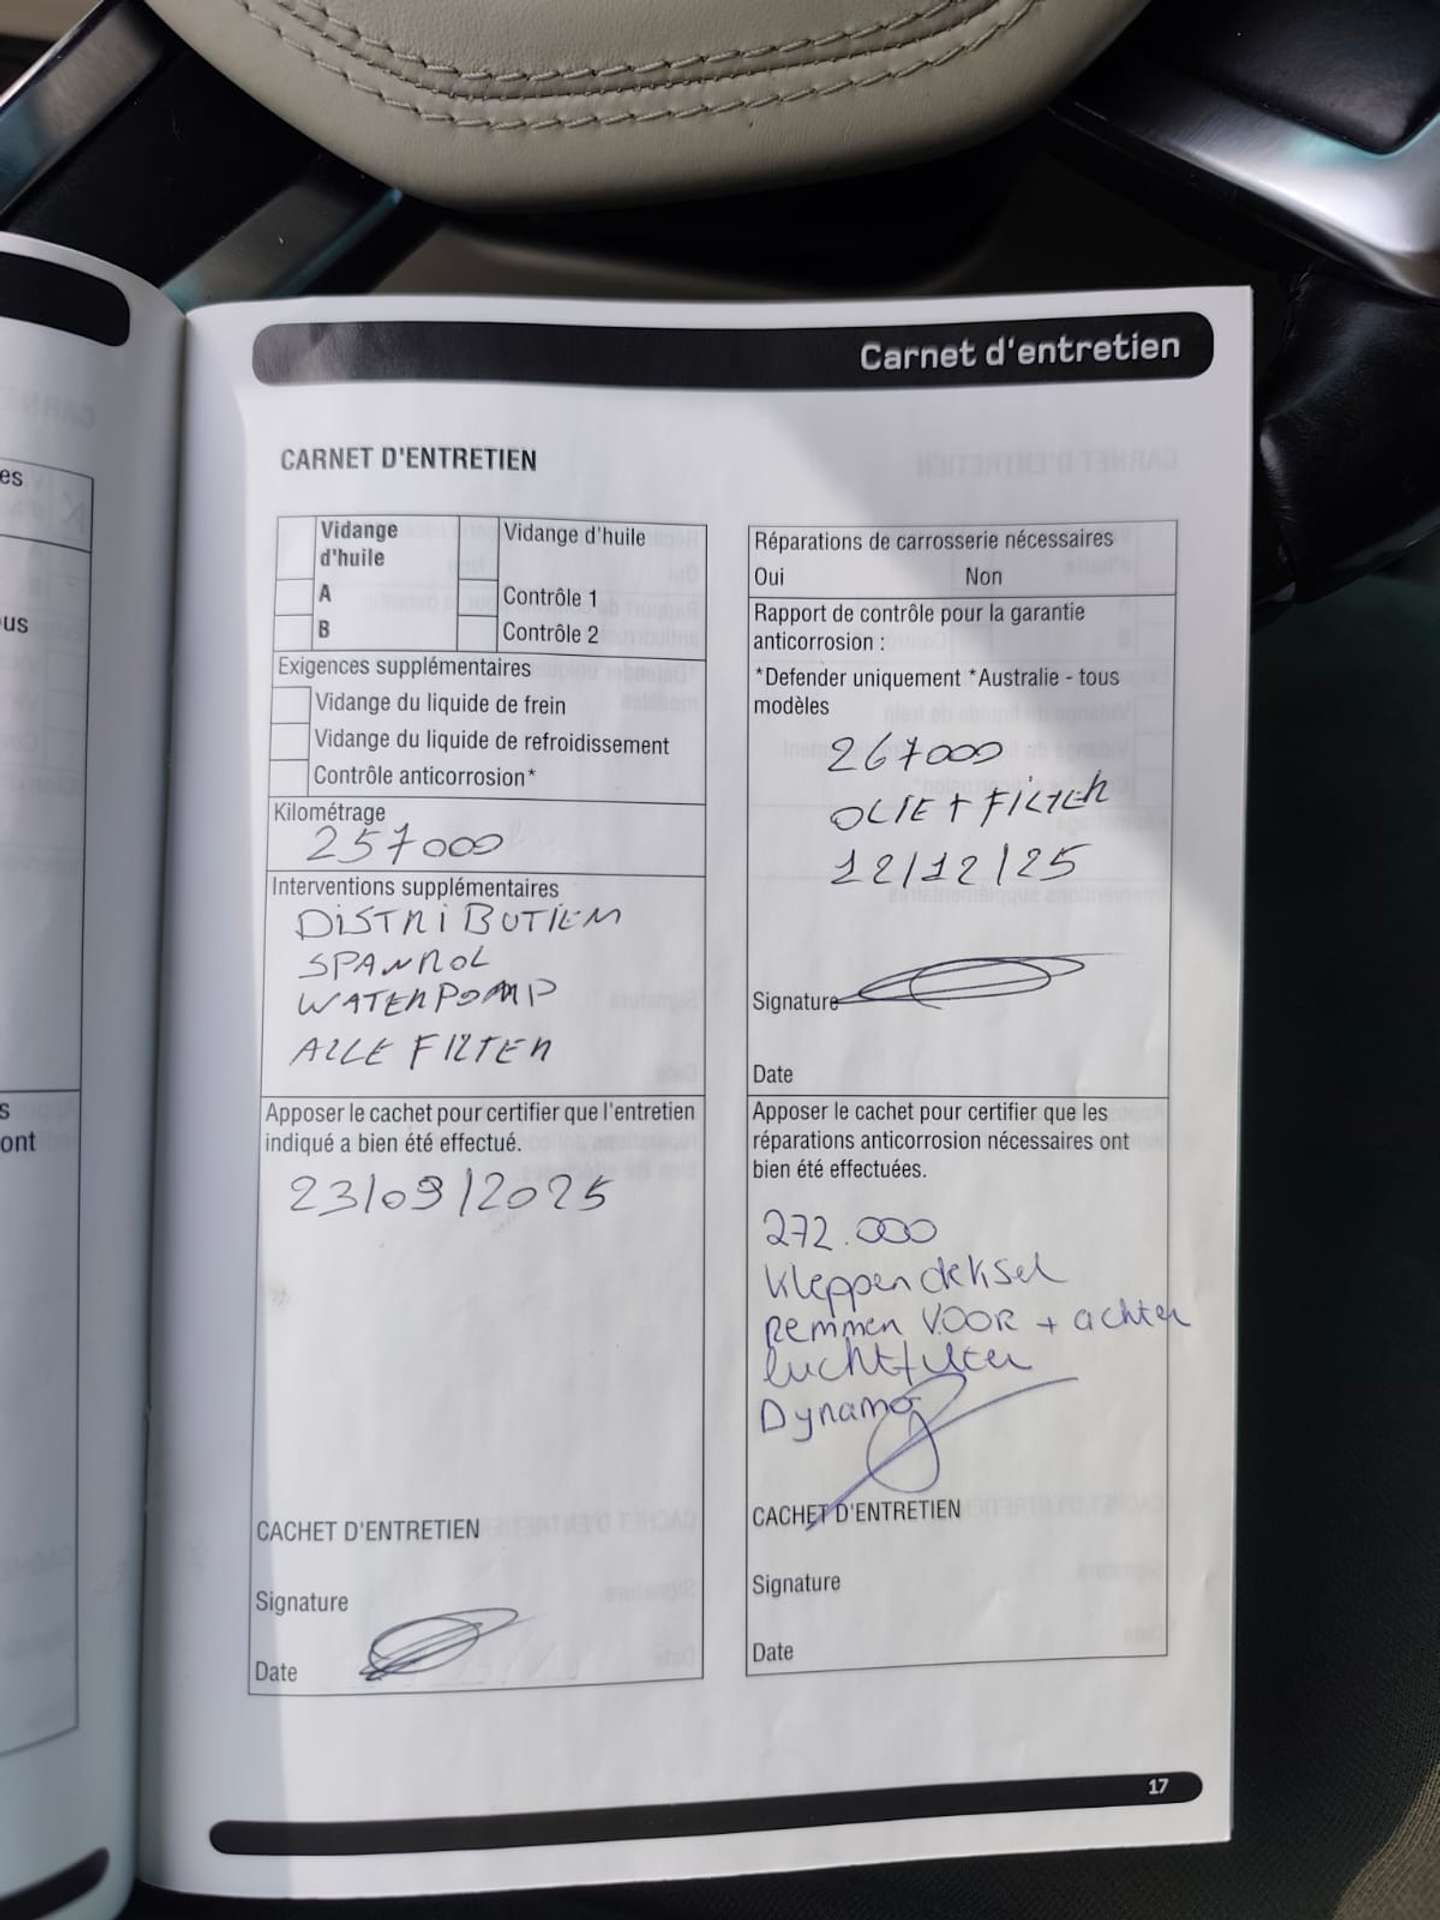 es
us
s
ont
Carnet d'entretien
CARNET D'ENTRETIEN
Vidange d'huile
Vidange d'huile
A
Contrôle 1
B
Contrôle 2
Exigences supplémentaires
Vidange du liquide de frein
Vidange du liquide de refroidissement
Contrôle anticorrosion*
Kilométrage
257000
Interventions supplémentaires
DISTRIBUTIEM
SPANROL
WATERPOMP
ALLE FILTER
Apposer le cachet pour certifier que l'entretien
indiqué a bien été effectué.
23/09/2025
CACHET D'ENTRETIEN
Signature
Date
Réparations de carrosserie nécessaires
Oui Non
Rapport de contrôle pour la garantie
anticorrosion :
*Defender uniquement *Australie - tous
modèles
267000
OLIE + FILTER
12/12/25
Signature
Date
Apposer le cachet pour certifier que les
réparations anticorrosion nécessaires ont
bien été effectuées.
272.000
kleppendeksel
Remmen VOOR + achter
luchtfilter
Dynamo
CACHET D'ENTRETIEN
Signature
Date
17